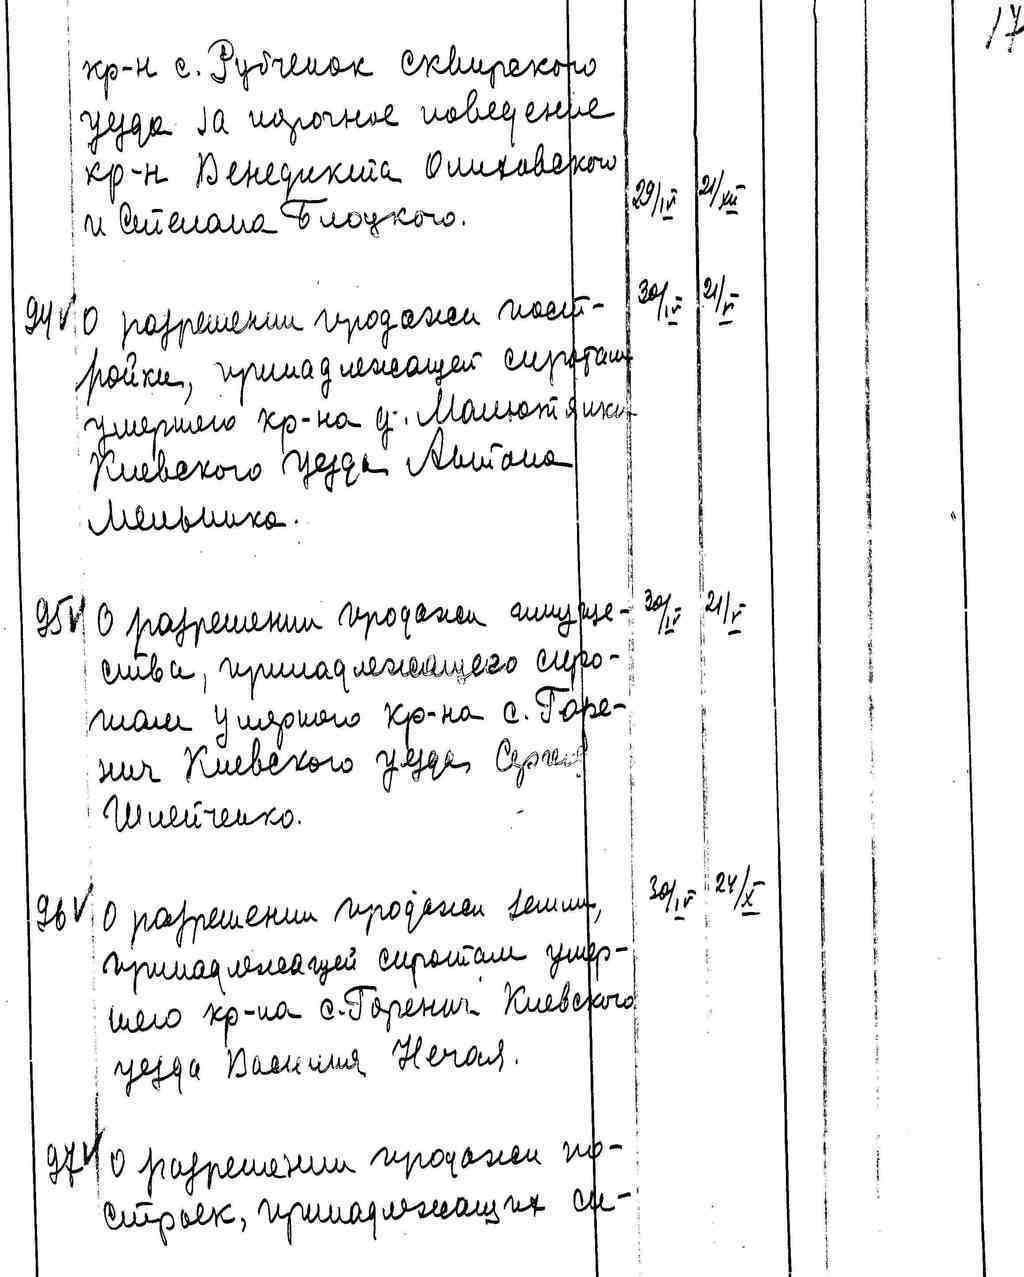 17
кр-н с. Рубченок Сквирского
уезда за порочное поведение
кр-н Венедикта Ольховского
и Степана Блоцкого. 29/IV 21/XII
94 О разрешении продажи пост- 30/IV 21/V
ройки, принадлежащей сиротам
умершего кр-на д. Малютянки
Киевского уезда Антона
Мельника.
95 О разрешении продажи имуще- 30/IV 21/V
ства, принадлежащего сиро-
там умершего кр-на с. Горе-
нич Киевского уезда Сергея
Шлейченко.
96 О разрешении продажи земли, 30/IV 24/X
принадлежащей сиротам умер-
шего кр-на с. Горенич Киевского
уезда Василия Нечая.
97 О разрешении продажи по-
строек, принадлежащих си-